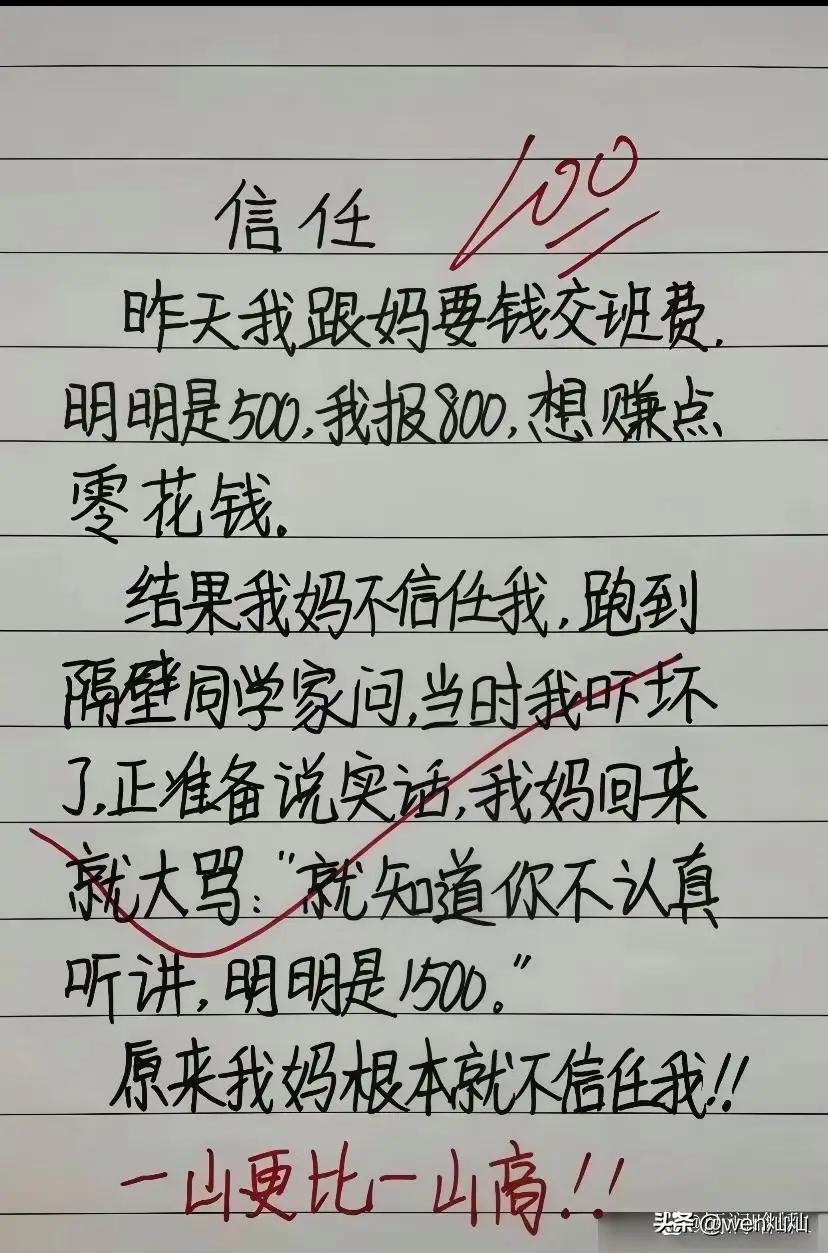 信任
100
昨天我跟妈要钱交班费.
明明是500,我报800,想赚点
零花钱.
结果我妈不信任我,跑到
隔壁同学家问,当时我吓坏
了,正准备说实话,我妈回来
就大骂:"就知道你不认真
听讲,明明是1500."
原来我妈根本就不信任我!!
一山更比一山高!!
头条 @wen灿灿